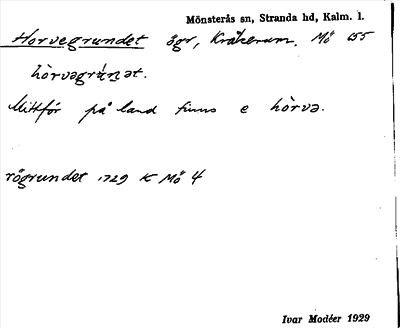 Mönsterås sn, Stranda hd, Kalm. l.
Horvegrundet ögr, Kråkerum. Mö 155
hòrvəgrúnət.
Mittför på land finns e hòrvə.
rögrundet 1729 K Mö 4
Ivar Modéer 1929